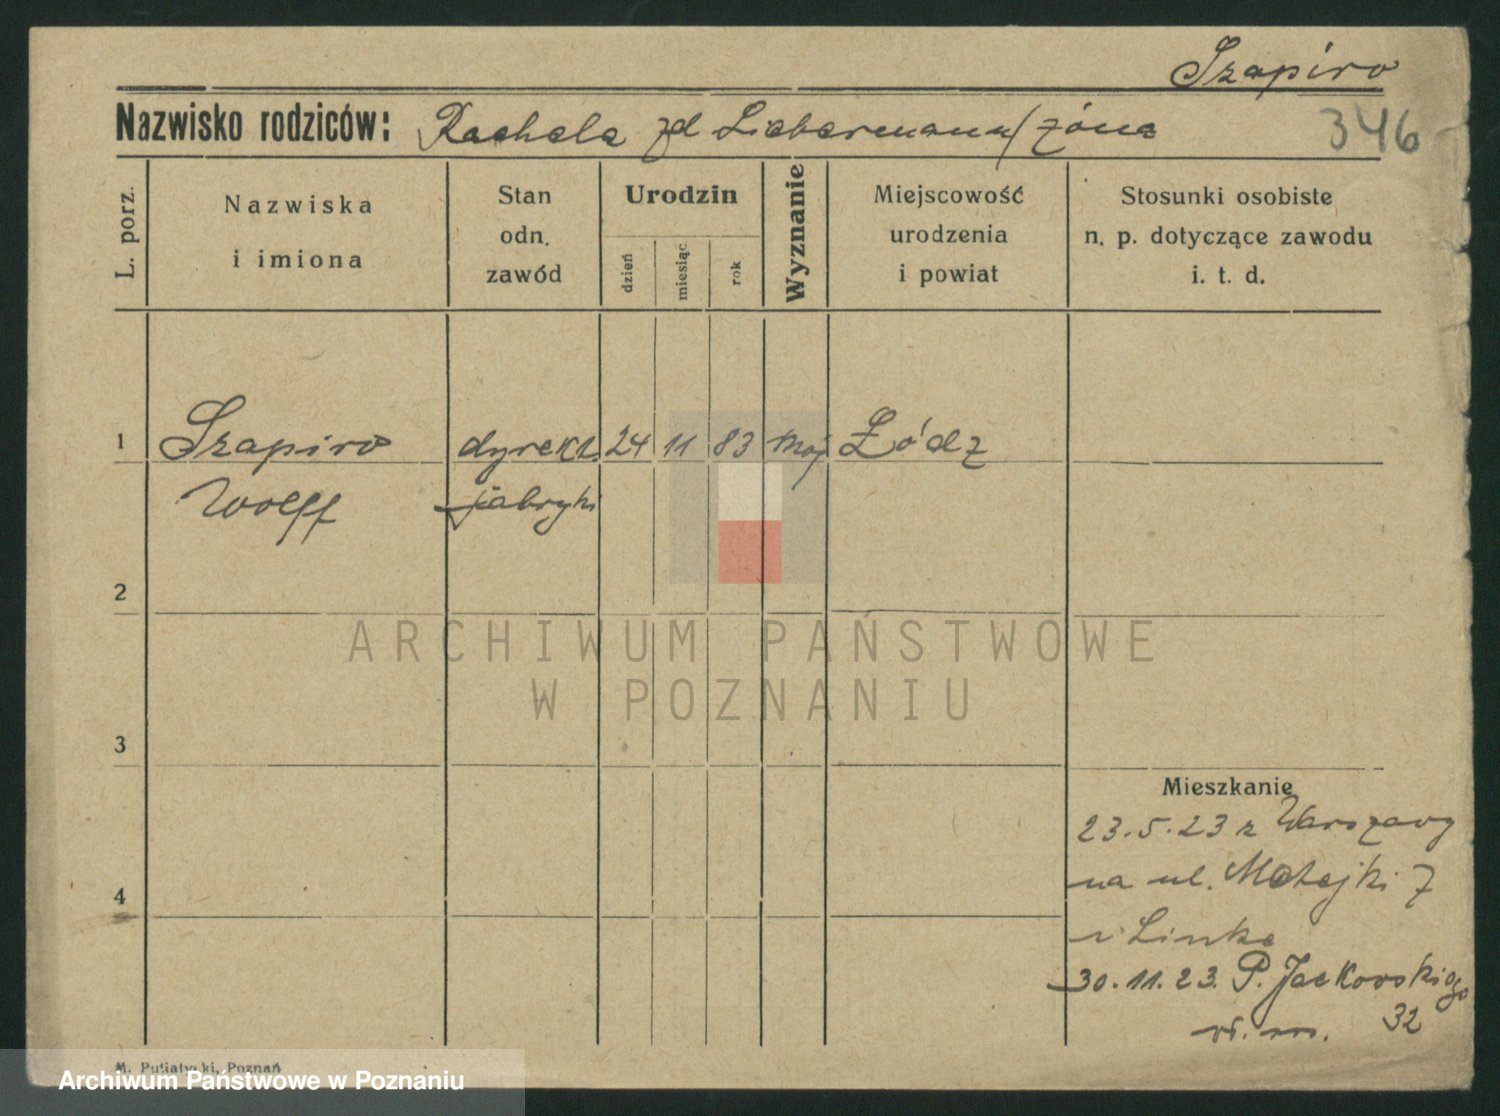 Szapiro
Nazwisko rodziców: Rachela zd Liebermann/żona
346
L. porz.
Nazwiska
i imiona
Stan
odn.
zawód
Urodzin
dzień
miesiąc
rok
Wyznanie
Miejscowość
urodzenia
i powiat
Stosunki osobiste
n. p. dotyczące zawodu
i. t. d.
1 Szapiro dyrekt. 24 11 83 moj Łódz
Wolff fabryki
2
ARCHIWUM PAŃSTWOWE
W POZNANIU
3
Mieszkanie
23.5.23 z Warszawy
na ul. Matejki 7
4
u Linke
30.11.23. P. Jackowskiego
32
M. Putiatycki, Poznań
Archiwum Państwowe w Poznaniu